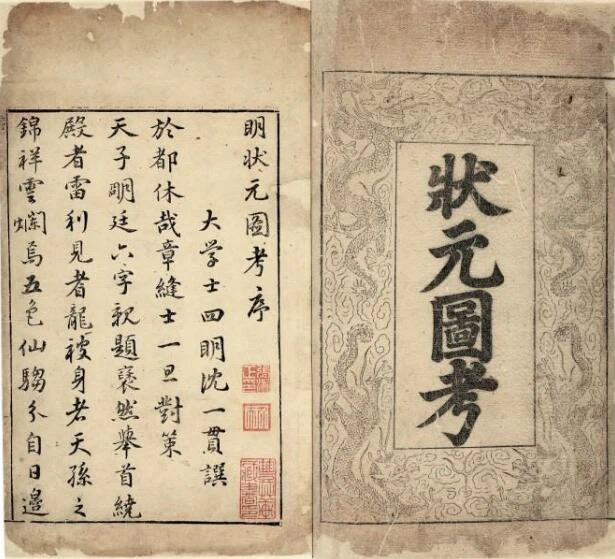 狀元圖考
明狀元圖考序
大学士四明沈一貫譔
於都休哉章縫士一旦對策
天子明廷六字親題襃然舉首繞
殿者雷利見者龍被身者天孫之
錦祥雲爛焉五色仙騶分自日邊